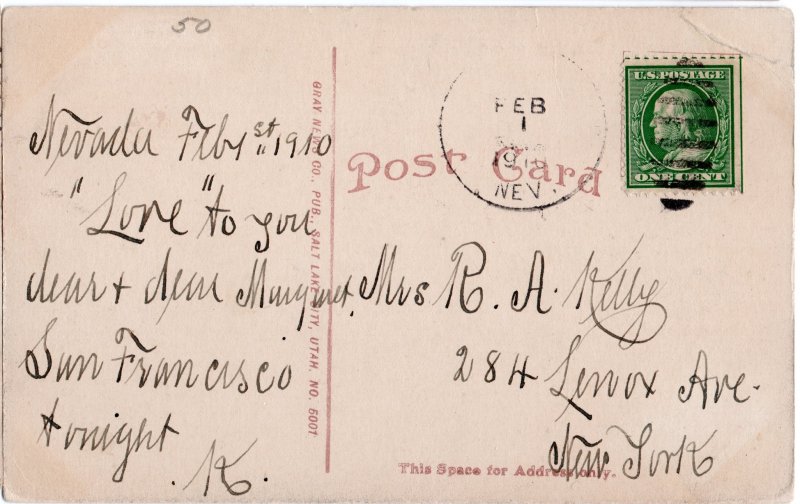 50
Nevada Feby 1st 1910
"Love" to you
dear + dear Margaret,
San Francisco
tonight
K.
GRAY NEWS CO., PUB., SALT LAKE CITY, UTAH. NO. 5001
Post Card
FEB
1
NEV.
U.S. POSTAGE
ONE CENT
Mrs R. A. Kelly
284 Lenox Ave.
New York
This Space for Address only.